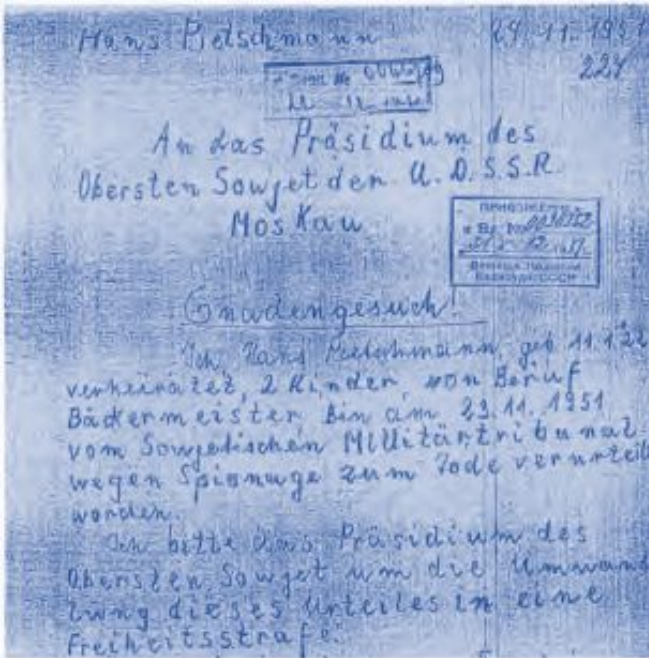 Hans Pietschmann 29.11.1951
227
An das Präsidium des
Obersten Sowjet der U.D.S.S.R.
Moskau
Gnadengesuch!
Ich, Hans Pietschmann, geb 11.1.22
verheiratet, 2 Kinder, von Beruf
Bäckermeister, bin am 29.11.1951
vom Sowjetischen Millitärtribunal
wegen Spionage zum Tode verurteil
worden.
Ich bitte das Präsidium des
Obersten Sowjet um die Umwand
lung dieses Urteiles in eine
Freiheitsstrafe.